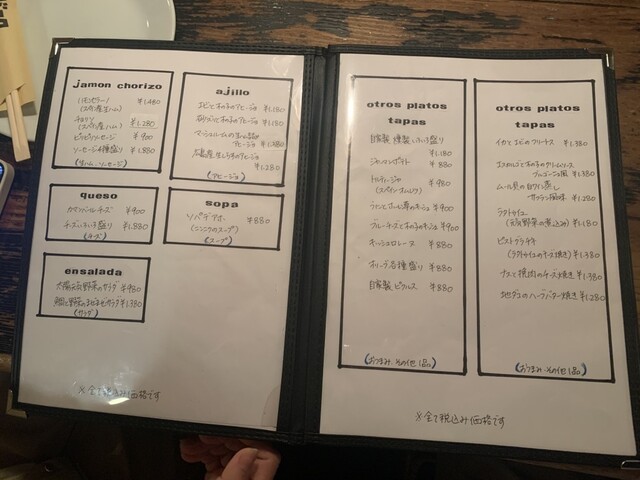 jamon chorizo
ハモンセラーノ ¥1,480
(スペイン産生ハム)
チョリソ ¥1,280
(スペイン産ハム)
ピリピリソーセージ ¥900
ソーセージ4種盛り ¥1,880
(生ハム・ソーセージ)
queso
カマンベールチーズ ¥900
チーズいろいろ盛り ¥1,880
(チーズ)
ensalada
太陽元気野菜のサラダ ¥980
¥1,380
(サラダ)
ajillo
エビときのこのアヒージョ ¥1,180
砂肝ときのこのアヒージョ ¥1,180
マッシュルームの
アヒージョ
広島産生しらすのアヒージョ
¥1,280
(アヒージョ)
sopa
ソパデアホ ¥880
(ニンニクのスープ)
(スープ)
※全て税込み価格です
otros platos
tapas
自家製 燻製いろいろ盛り
¥1,180
ジャーマンポテト ¥880
トルティージャ ¥980
(スペインオムレツ)
¥900
ブルーチーズときのこのキッシュ ¥900
キッシュロレーヌ ¥880
オリーブ各種盛り ¥880
自家製ピクルス ¥880
(おつまみ その他1品)
otros platos
tapas
イカとエビのフリート ¥1,380
エスカルゴときのこのクリームソース
ブルゴーニュ風 ¥1,380
ムール貝の白ワイン蒸し
サフラン風味 ¥1,280
ラタトゥイユ
(元気野菜の煮込み) ¥1,180
ピストプランチャ
(ラタトゥイユのチーズ焼き) ¥1,380
ナスと挽肉のチーズ焼き ¥1,380
地ダコのハーブバター焼き ¥1,280
(おつまみ その他1品)
※全て税込み価格です